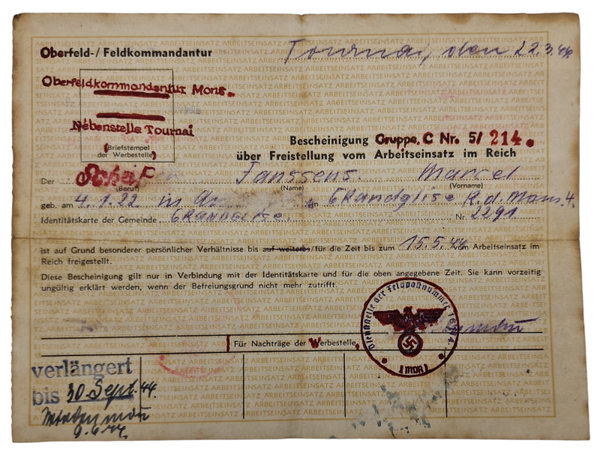 Oberfeld-/Feldkommandantur
Tournai, den 22.3.44
Oberfeldkommandantur Mons.
Nebenstelle Tournai
(Briefstempel
der Werbestelle)
Bescheinigung Gruppe. C Nr. 5/ 214.
über Freistellung vom Arbeitseinsatz im Reich
Der Janssens Marcel
(Beruf) (Name) (Vorname)
geb. am 4.1.22 in
Identitätskarte der Gemeinde Nr. 2291
ist auf Grund besonderer persönlicher Verhältnisse bis auf weiteres/für die Zeit bis zum 15.5.44 vom Arbeitseinsatz im
Reich freigestellt.
Diese Bescheinigung gilt nur in Verbindung mit der Identitätskarte und für die oben angegebene Zeit. Sie kann vorzeitig
ungültig erklärt werden, wenn der Befreiungsgrund nicht mehr zutrifft.
Dienststelle der Feldpostnummer
Für Nachträge der Werbestelle
verlängert
bis 30 Sept. 44.
9.6.44.
ARBEITSEINSATZ ARBEITSEINSATZ ARBEITSEINSATZ